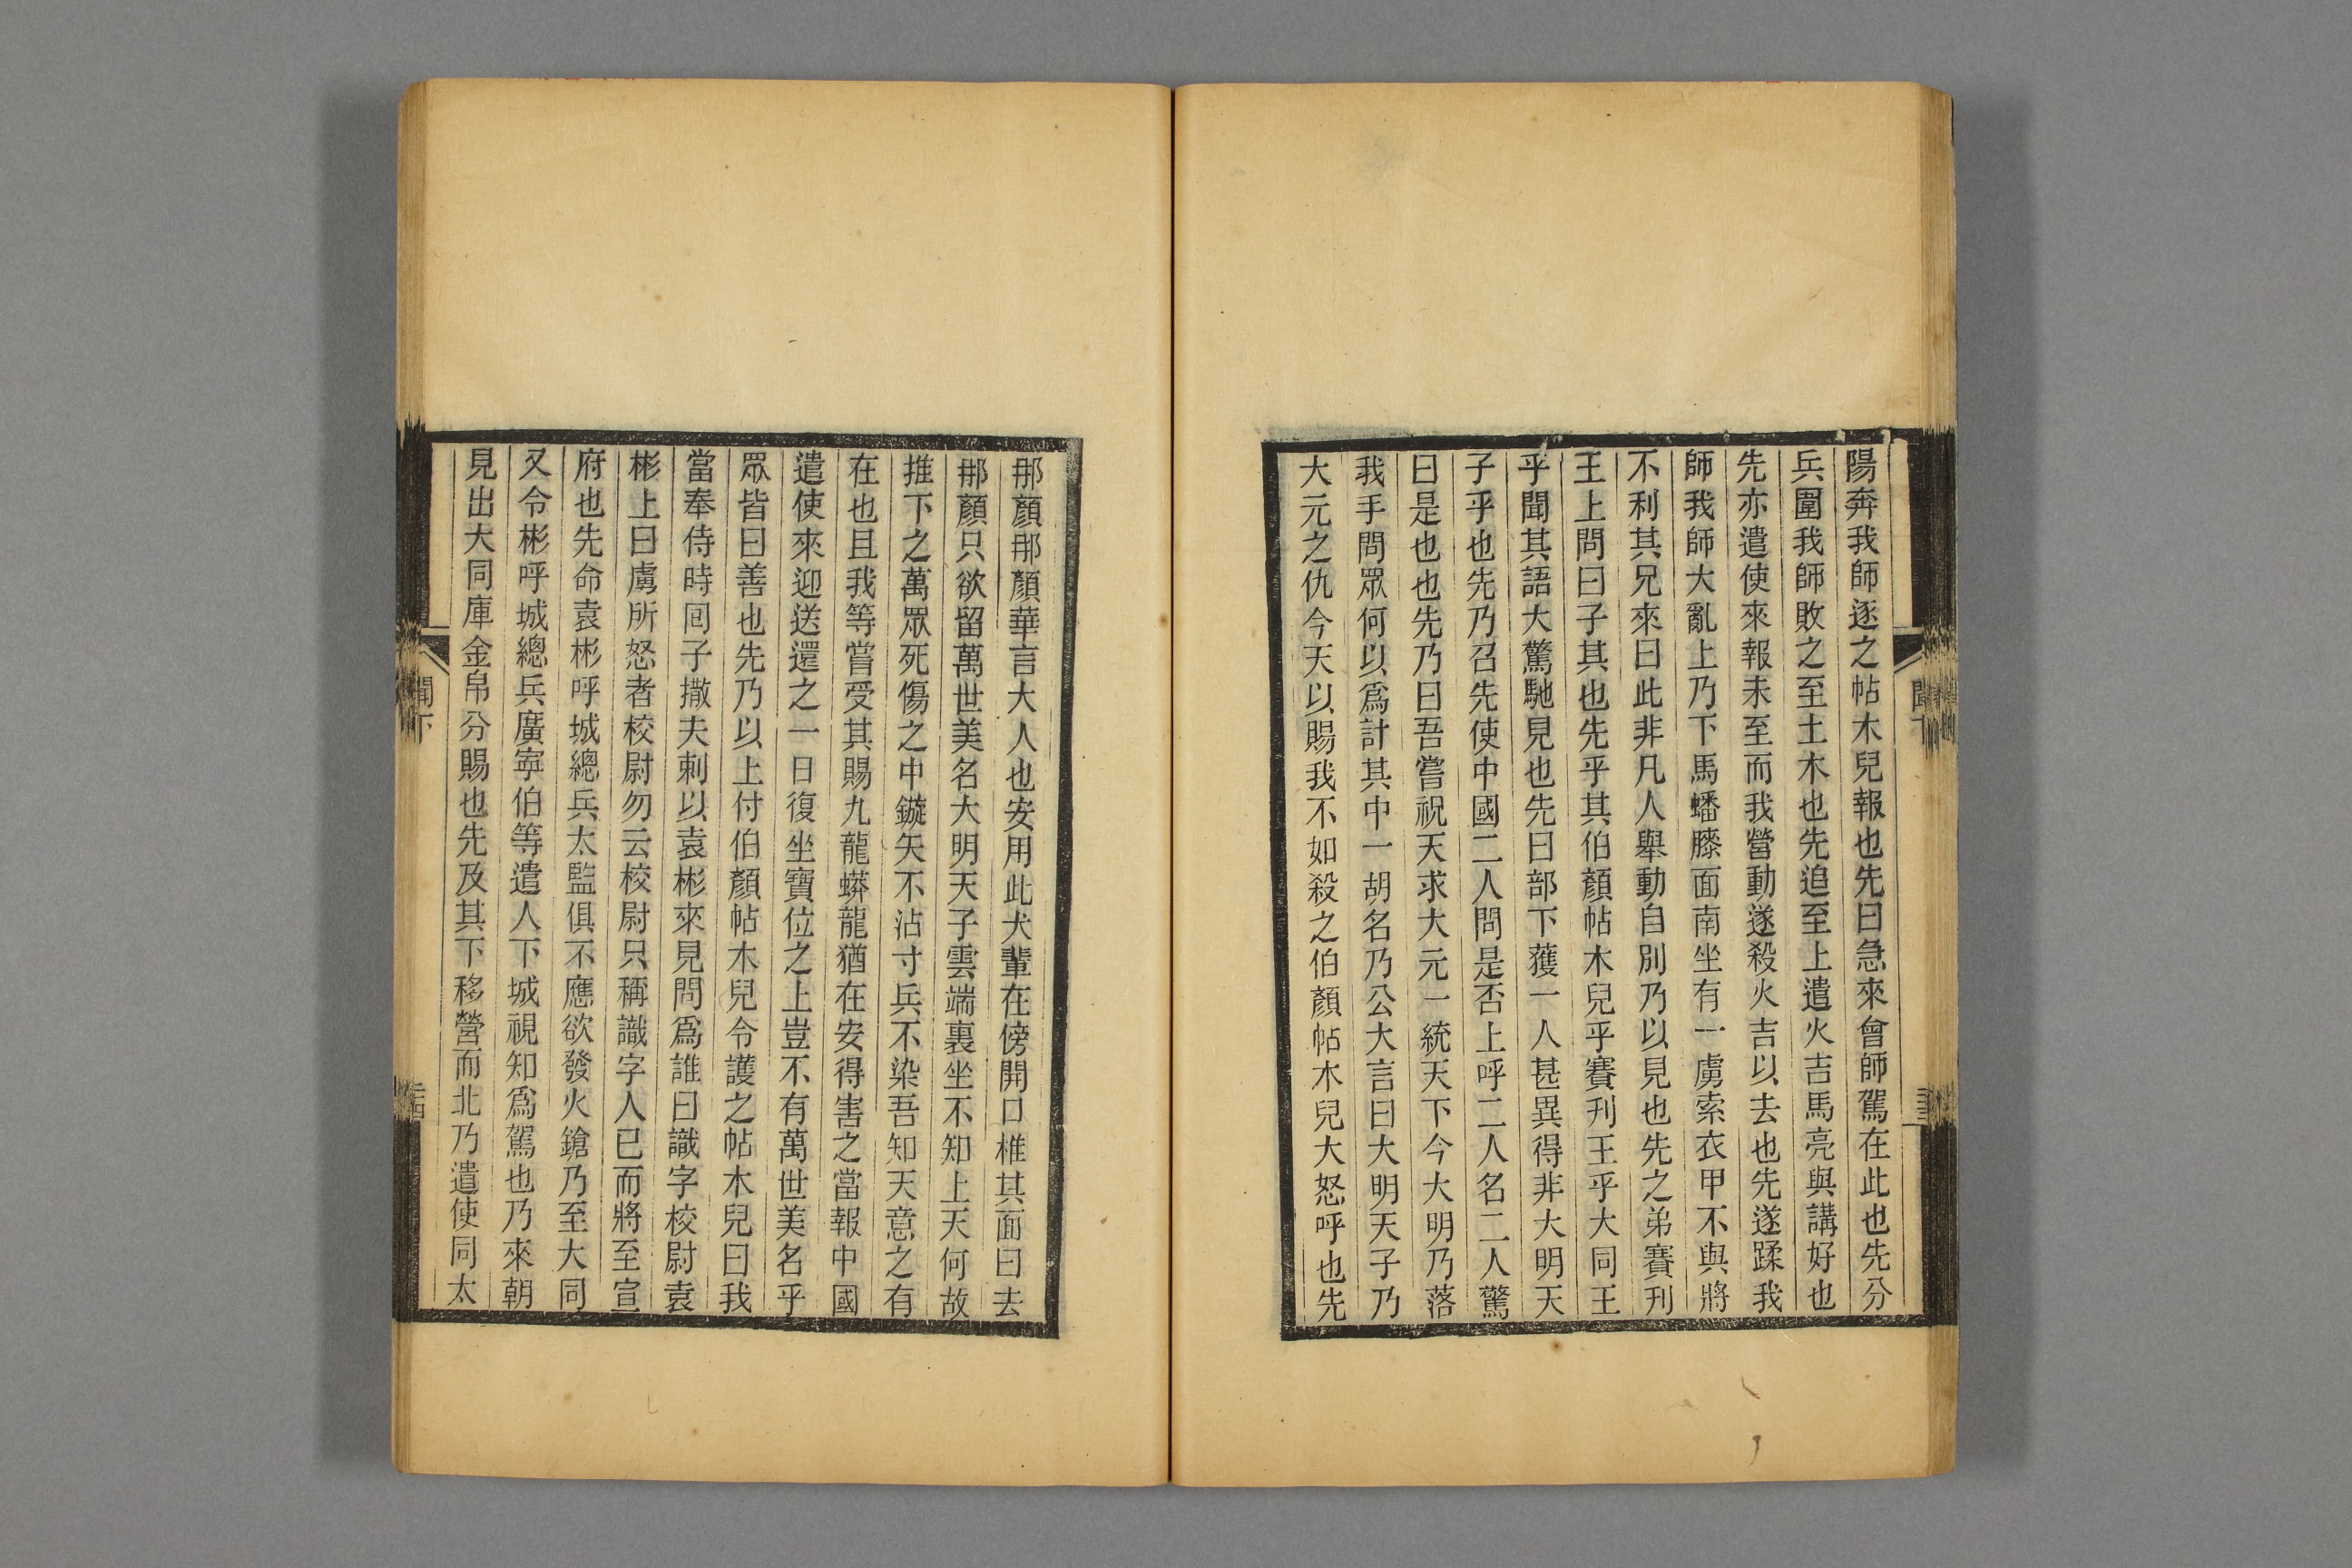 陽奔我師逐之帖木兒報也先曰急來會師駕在此也先分
兵圍我師敗之至土木也先追至上遣火吉馬亮與講好也
先亦遣使來報未至而我營動遂殺火吉以去也先遂蹂我
師我師大亂上乃下馬蟠膝面南坐有一虜索衣甲不與將
不利其兄來曰此非凡人舉動自別乃以見也先之弟賽刋
王上問曰子其也先乎其伯顏帖木兒乎賽刋王乎大同王
乎聞其語大驚馳見也先曰部下獲一人甚異得非大明天
子乎也先乃召先使中國二人問是否上呼二人名二人驚
曰是也也先乃曰吾嘗祝天求大元一統天下今大明乃落
我手問眾何以爲計其中一胡名乃公大言曰大明天子乃
大元之仇今天以賜我不如殺之伯顏帖木兒大怒呼也先
那顏那顏華言大人也安用此犬輩在傍開口椎其面曰去
那顏只欲留萬世美名大明天子雲端裏坐不知上天何故
推下之萬眾死傷之中鏃矢不沾寸兵不染吾知天意之有
在也且我等嘗受其賜九龍蟒龍猶在安得害之當報中國
遣使來迎送還之一日復坐寶位之上豈不有萬世美名乎
眾皆曰善也先乃以上付伯顏帖木兒令護之帖木兒曰我
當奉侍時囘子撒夫剌以袁彬來見問爲誰曰識字校尉袁
彬上曰虜所怒者校尉勿云校尉只稱識字人已而將至宣
府也先命袁彬呼城總兵太監俱不應欲發火鎗乃至大同
又令彬呼城總兵廣寧伯等遣人下城視知爲駕也乃來朝
見出大同庫金帛分賜也先及其下移營而北乃遣使同太
聞下